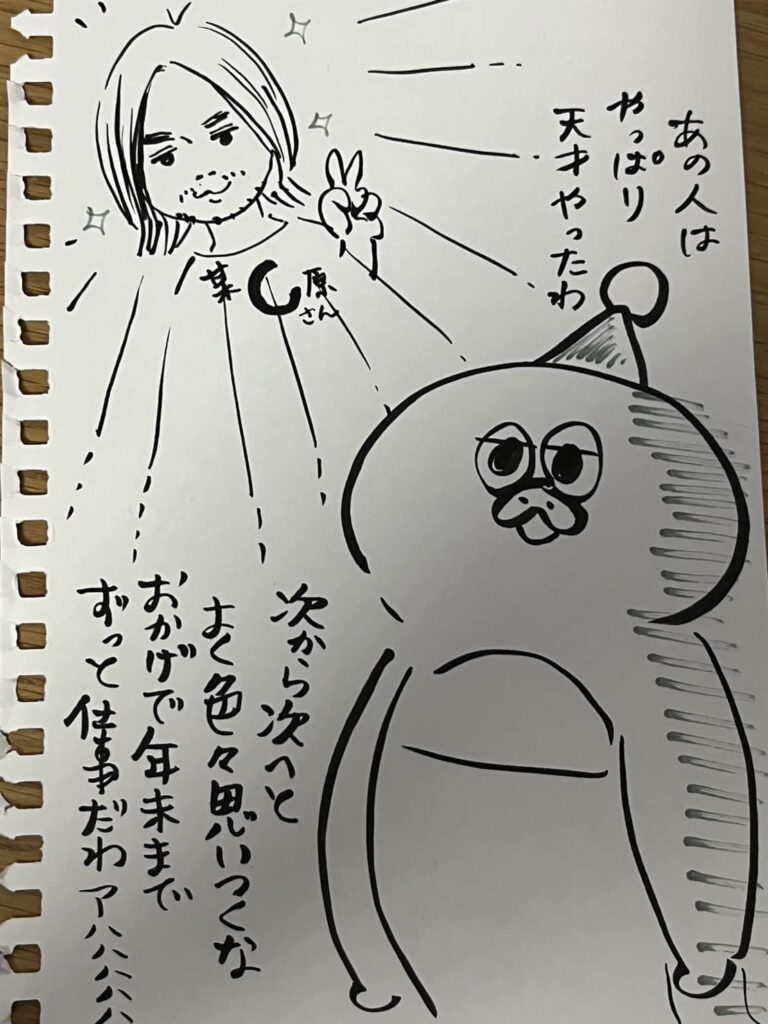 あの人は
やっぱり
天才やったわ
某
原
さん
次から次へと
よく色々思いつくな
おかげで年末まで
ずっと仕事だわアハハハハハ